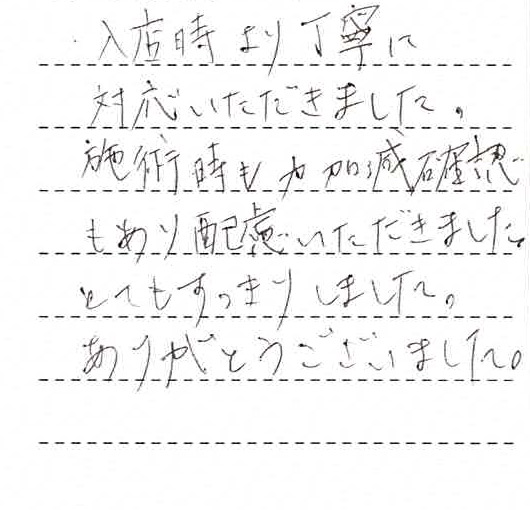 入店時より丁寧に
対応いただきました。
施術時も力加減確認
もあり配慮いただきました。
とてもすっきりしました。
ありがとうございました。